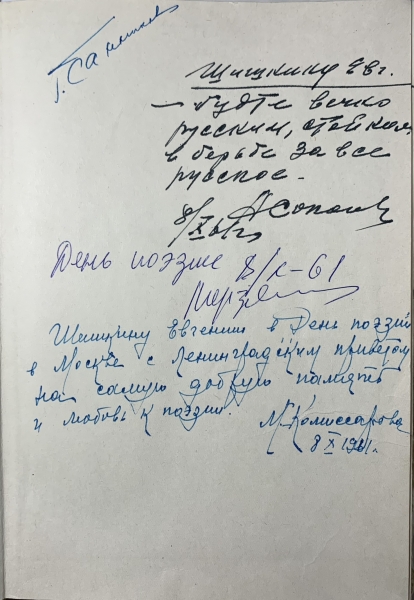 Г. Санников
Шишкину Евг.
— будте вечко
русским, стойким
в борьбе за все
русское.
8/X 61 г.
День поэзии 8/X-61
Шишкину Евгению в День поэзии
в Москве с Ленинградским приветом
на самую добрую память
и любовь к поэзии.
М. Комиссарова
8 X 1961 г.